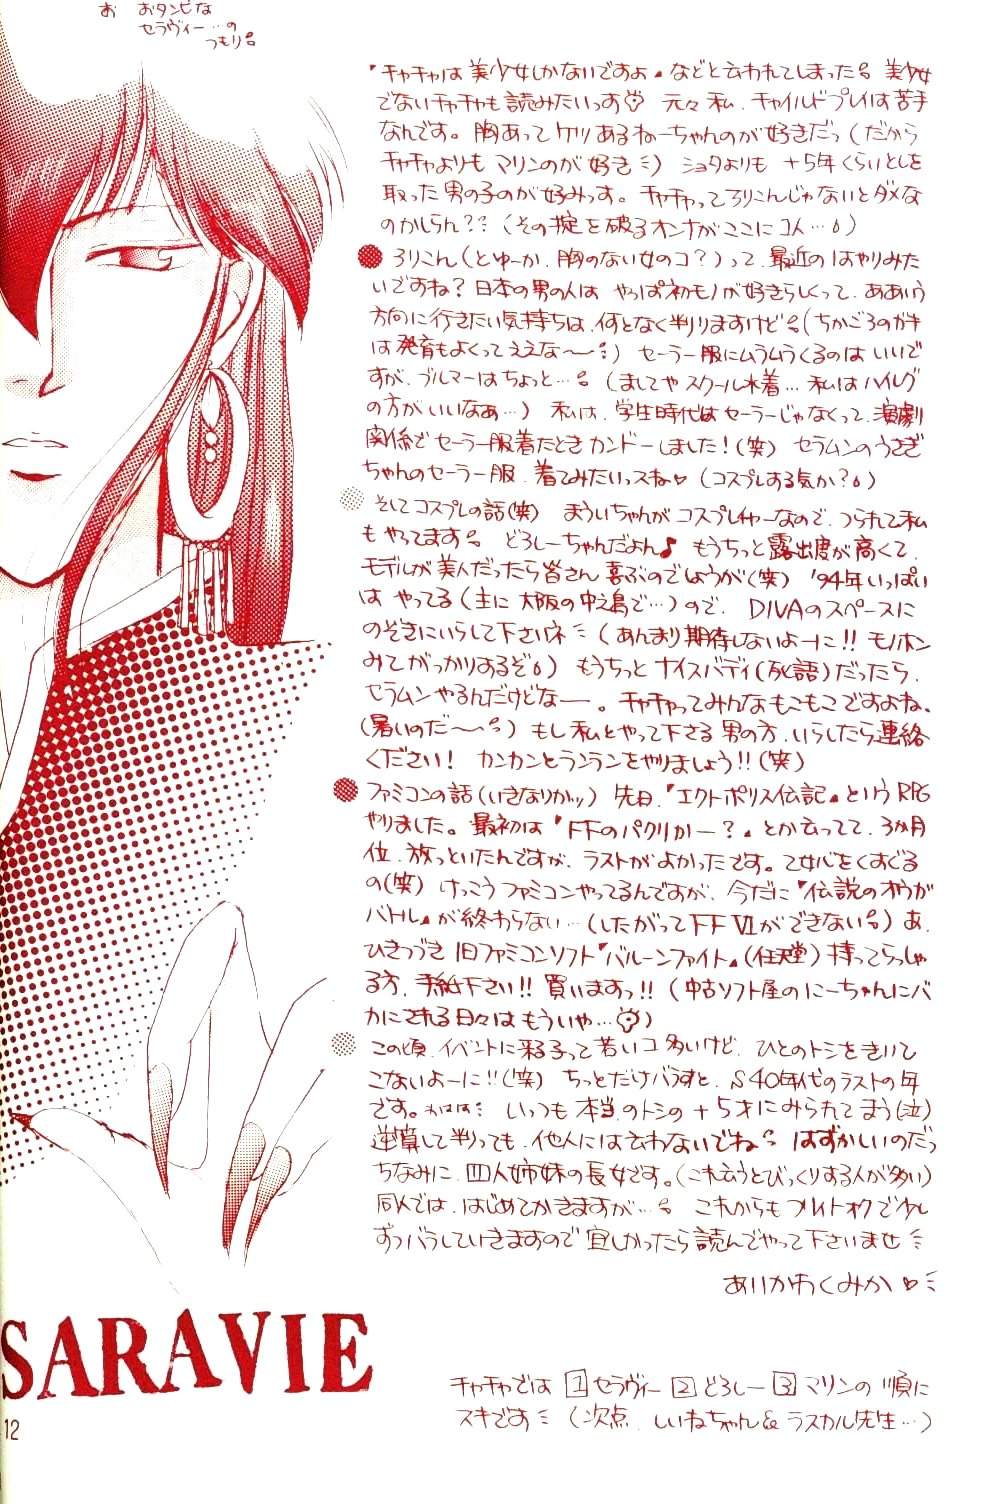 お おタンビな
セラヴィー…の
つもり
『チャチャは美少女しかないですよ』などと云われてしまった 美少女
でないチャチャも読みたいっす♡ 元々私、チャイルドプレイは苦手
なんです。胸あってケツあるねーちゃんのが好きだっ(だから
チャチャよりもマリンのが好き) ショタよりも +5年くらいとしを
取った男の子のが好みっす。チャチャってろりこんじゃないとダメな
のかしらん?? (その掟を破るオンナがここに1人…)
●ろりこん(とゆーか、胸のない女のコ?)って、最近のはやりみた
いですね?日本の男の人は やっぱ初モノが好きらしくって、ああいう
方向に行きたい気持ちは、何となく判りますけど(ちかごろのガキ
は発育もよくってええな〜) セーラー服にムラムラくるのはいいで
すが、ブルマーはちょっと… (ましてやスクール水着…私はハイレグ
の方がいいなぁ…) 私は、学生時代はセーラーじゃなくって、演劇
関係でセーラー服着たときカンドーしました!(笑) セラムンのうさぎ
ちゃんのセーラー服、着てみたいっスね♥ (コスプレする気か?)
そしてコスプレの話(笑) まういちゃんがコスプレイヤーなので、つられて私
もやってます どろしーちゃんだよん♪ もうちっと露出度が高くて、
モデルが美人だったら皆さん喜ぶのでしょうが(笑) '94年いっぱい
は やってる(主に大阪の中之島で…)ので、DIVAのスペースに
のぞきにいらして下さいネ (あんまり期待しないよーに!!モノホン
みてがっかりするぞ) もうちっとナイスバディ(死語)だったら、
セラムンやるんだけどなー。チャチャってみんなもこもこですよね、
(暑いのだ〜) もし私とやって下さる男の方、いらしたら連絡
ください! カンカンとランランをやりましょう!!(笑)
●ファミコンの話(いきなりかッ) 先日、『エクトポリス伝記』というRPG
やりました。最初は『FFのパクリかー?』とか云ってて、3か月
位、放っといたんですが、ラストがよかったです。乙女心をくすぐる
の(笑) けっこうファミコンやってるんですが、今だに『伝説のオウガ
バトル』が終わらない…(したがってFFⅥができない) あ、
ひきつづき 旧ファミコンソフト『バルーンファイト』(任天堂)持ってらっしゃ
る方、手紙下さい!!買いますっ!!(中古ソフト屋のにーちゃんにバ
カにされる日々はもういや…)
この頃、イベントに来る子って若いコ多いけど、ひとのトシをきいて
こないよーに!!(笑) ちっとだけバラすと、S40年代のラストの年
です。わはは いっつも本当のトシの+5才にみられてまう(泣)
逆算して判っても、他人には云わないでね はずかしいのだっ
ちなみに、四人姉妹の長女です。(これ云うとびっくりする人が多い)
同人では、はじめてかきますが… これからもフレイトオクで少し
ずつバラしていきますので宜しかったら読んでやって下さいませ
あいかわくみか♥
チャチャでは 1 セラヴィー 2 どろしー 3 マリンの順に
スキです (次点、しいねちゃん&ラスカル先生…)
SARAVIE
12